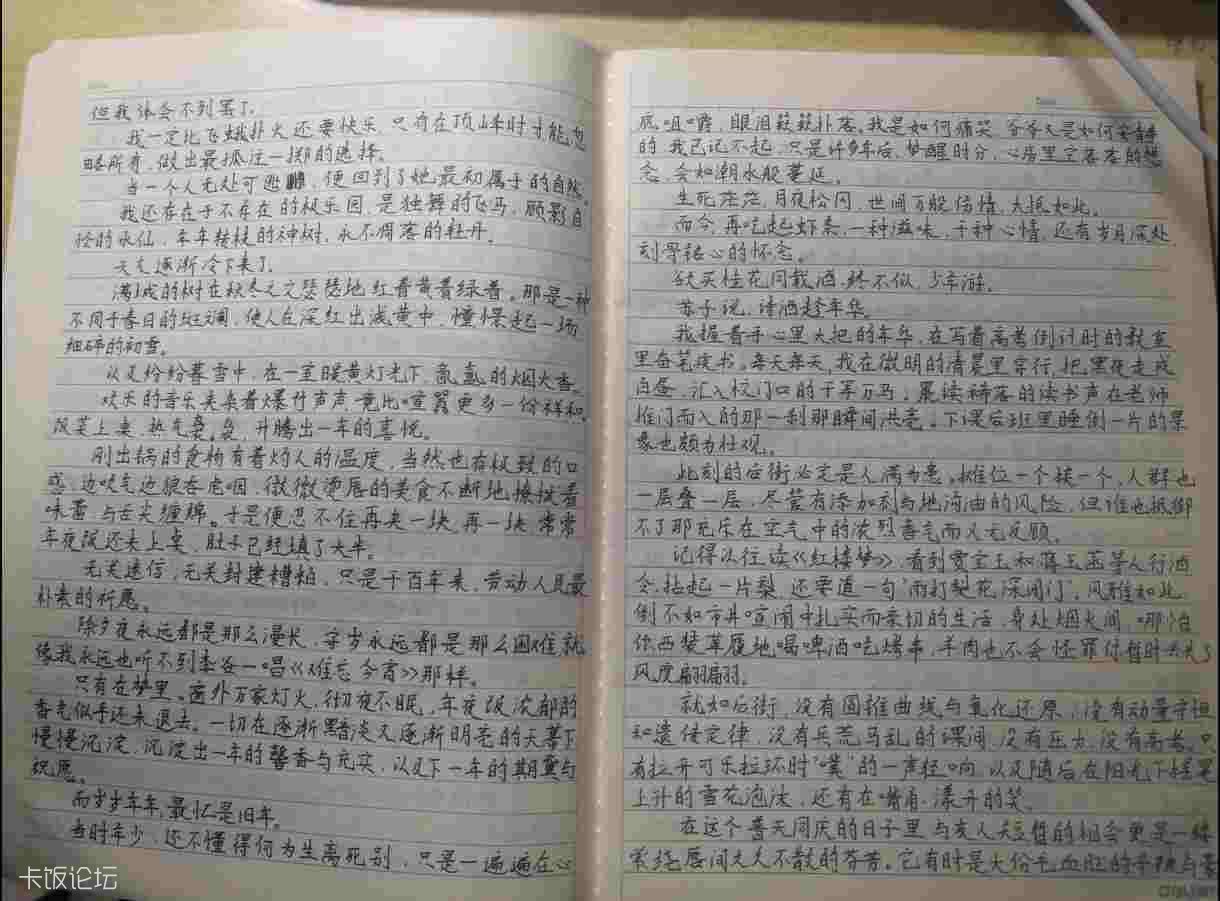 但我体会不到罢了。
我一定比飞蛾扑火还要快乐，只有在顶峰时才能忽
略所有，做出最孤注一掷的选择。
当一个人无处可逃时，便回到了她最初属于的自然。
我还存在于不存在的极乐园，是独舞的飞马，顾影自
怜的水仙，末年枝的神树，永不凋落的牡丹。
天气逐渐冷下来了。
满城的树在秋冬之交琵琶地红着黄着绿着。那是一种
不同于春日的斑斓，使人在深红出浅黄中，憧憬起一场
细碎的初雪。
以及纷纷暮雪中，在一室暖黄灯光下，氤氲的烟火香。
欢乐的音乐夹杂着爆竹声声，竟比喧嚣更多一份祥和。
饭菜上桌，热气袅袅，升腾出一年的喜悦。
刚出锅的食物有着灼人的温度，当然也有极致的口
感，边吹气边狼吞虎咽，微微烫唇的美食不断地撩拨着
味蕾，与舌尖缠绵。于是便忍不住再夹一块，再一块，常常
年夜饭还未上桌，肚子已经填了大半。
无关迷信，无关封建糟粕，只是千百年来，劳动人民最
朴素的祈愿。
除夕夜永远都是那么漫长，守岁永远都是那么困难，就
像我永远也听不到李谷一唱《难忘今宵》那样。
只有在梦里。窗外万家灯火，彻夜不眠，年夜饭浓郁的
香气似乎还未退去。一切在逐渐黯淡又逐渐明亮的天幕下
慢慢沉淀，沉淀出一年的馨香与充实，以及下一年的期冀与
祝愿。
而岁岁年年，最忆是旧年。
当时年少，还不懂得何为生离死别，只是一遍遍在心
底咀嚼，眼泪簌簌扑落。我是如何痛哭，爷爷又是如何安静
的，我已记不起，只是许多年后，梦醒时分，心房里空落落的想
念，会如潮水般蔓延。
生死茫茫，月夜松冈，世间万般伤情，大抵如此。
而今，再吃起虾素，一种滋味，千种心情，还有岁月深处
刻骨铭心的怀念。
欲买桂花同载酒，终不似，少年游。
苏子说，诗酒趁年华。
我握着手心里大把的年华，在写着高考倒计时的教室
里奋笔疾书。每天每天，我在微明的清晨里穿行，把黑夜走成
白昼，汇入校门口的千军万马。晨读稀落的读书声在老师
推门而入的那一刹那瞬间洪亮。下课后班里睡倒一片的景
象也颇为壮观。
此刻的后街必定是人满为患。摊位一个挨一个，人群也
一层叠一层，尽管有添加剂与地沟油的风险，但谁也抵御
不了那充斥在空气中的浓烈香气而义无反顾。
记得以往读《红楼梦》，看到贾宝玉和蒋玉菡等人行酒
令，拈起一片梨，还要道一句“雨打梨花深闭门”。风雅如此，
倒不如市井喧闹中扎实而亲切的生活，身处烟火间，哪怕
你西装革履地喝啤酒吃烤串，羊肉也不会怪罪你暂时失了
风度翩翩。
就如后街，没有圆锥曲线与氧化还原，没有动量守恒
和遗传定律，没有兵荒马乱的课间，没有压力，没有高考。只
有拉开可乐拉环时“噗”的一声轻响，以及随后在阳光下摇晃
上升的雪花泡沫，还有在嘴角漾开的笑。
在这个普天同庆的日子里，与友人短暂的相会更是一缕
萦绕唇间久久不散的芬芳。它有时是大俗毛血旺的辛辣与豪
卡饭论坛